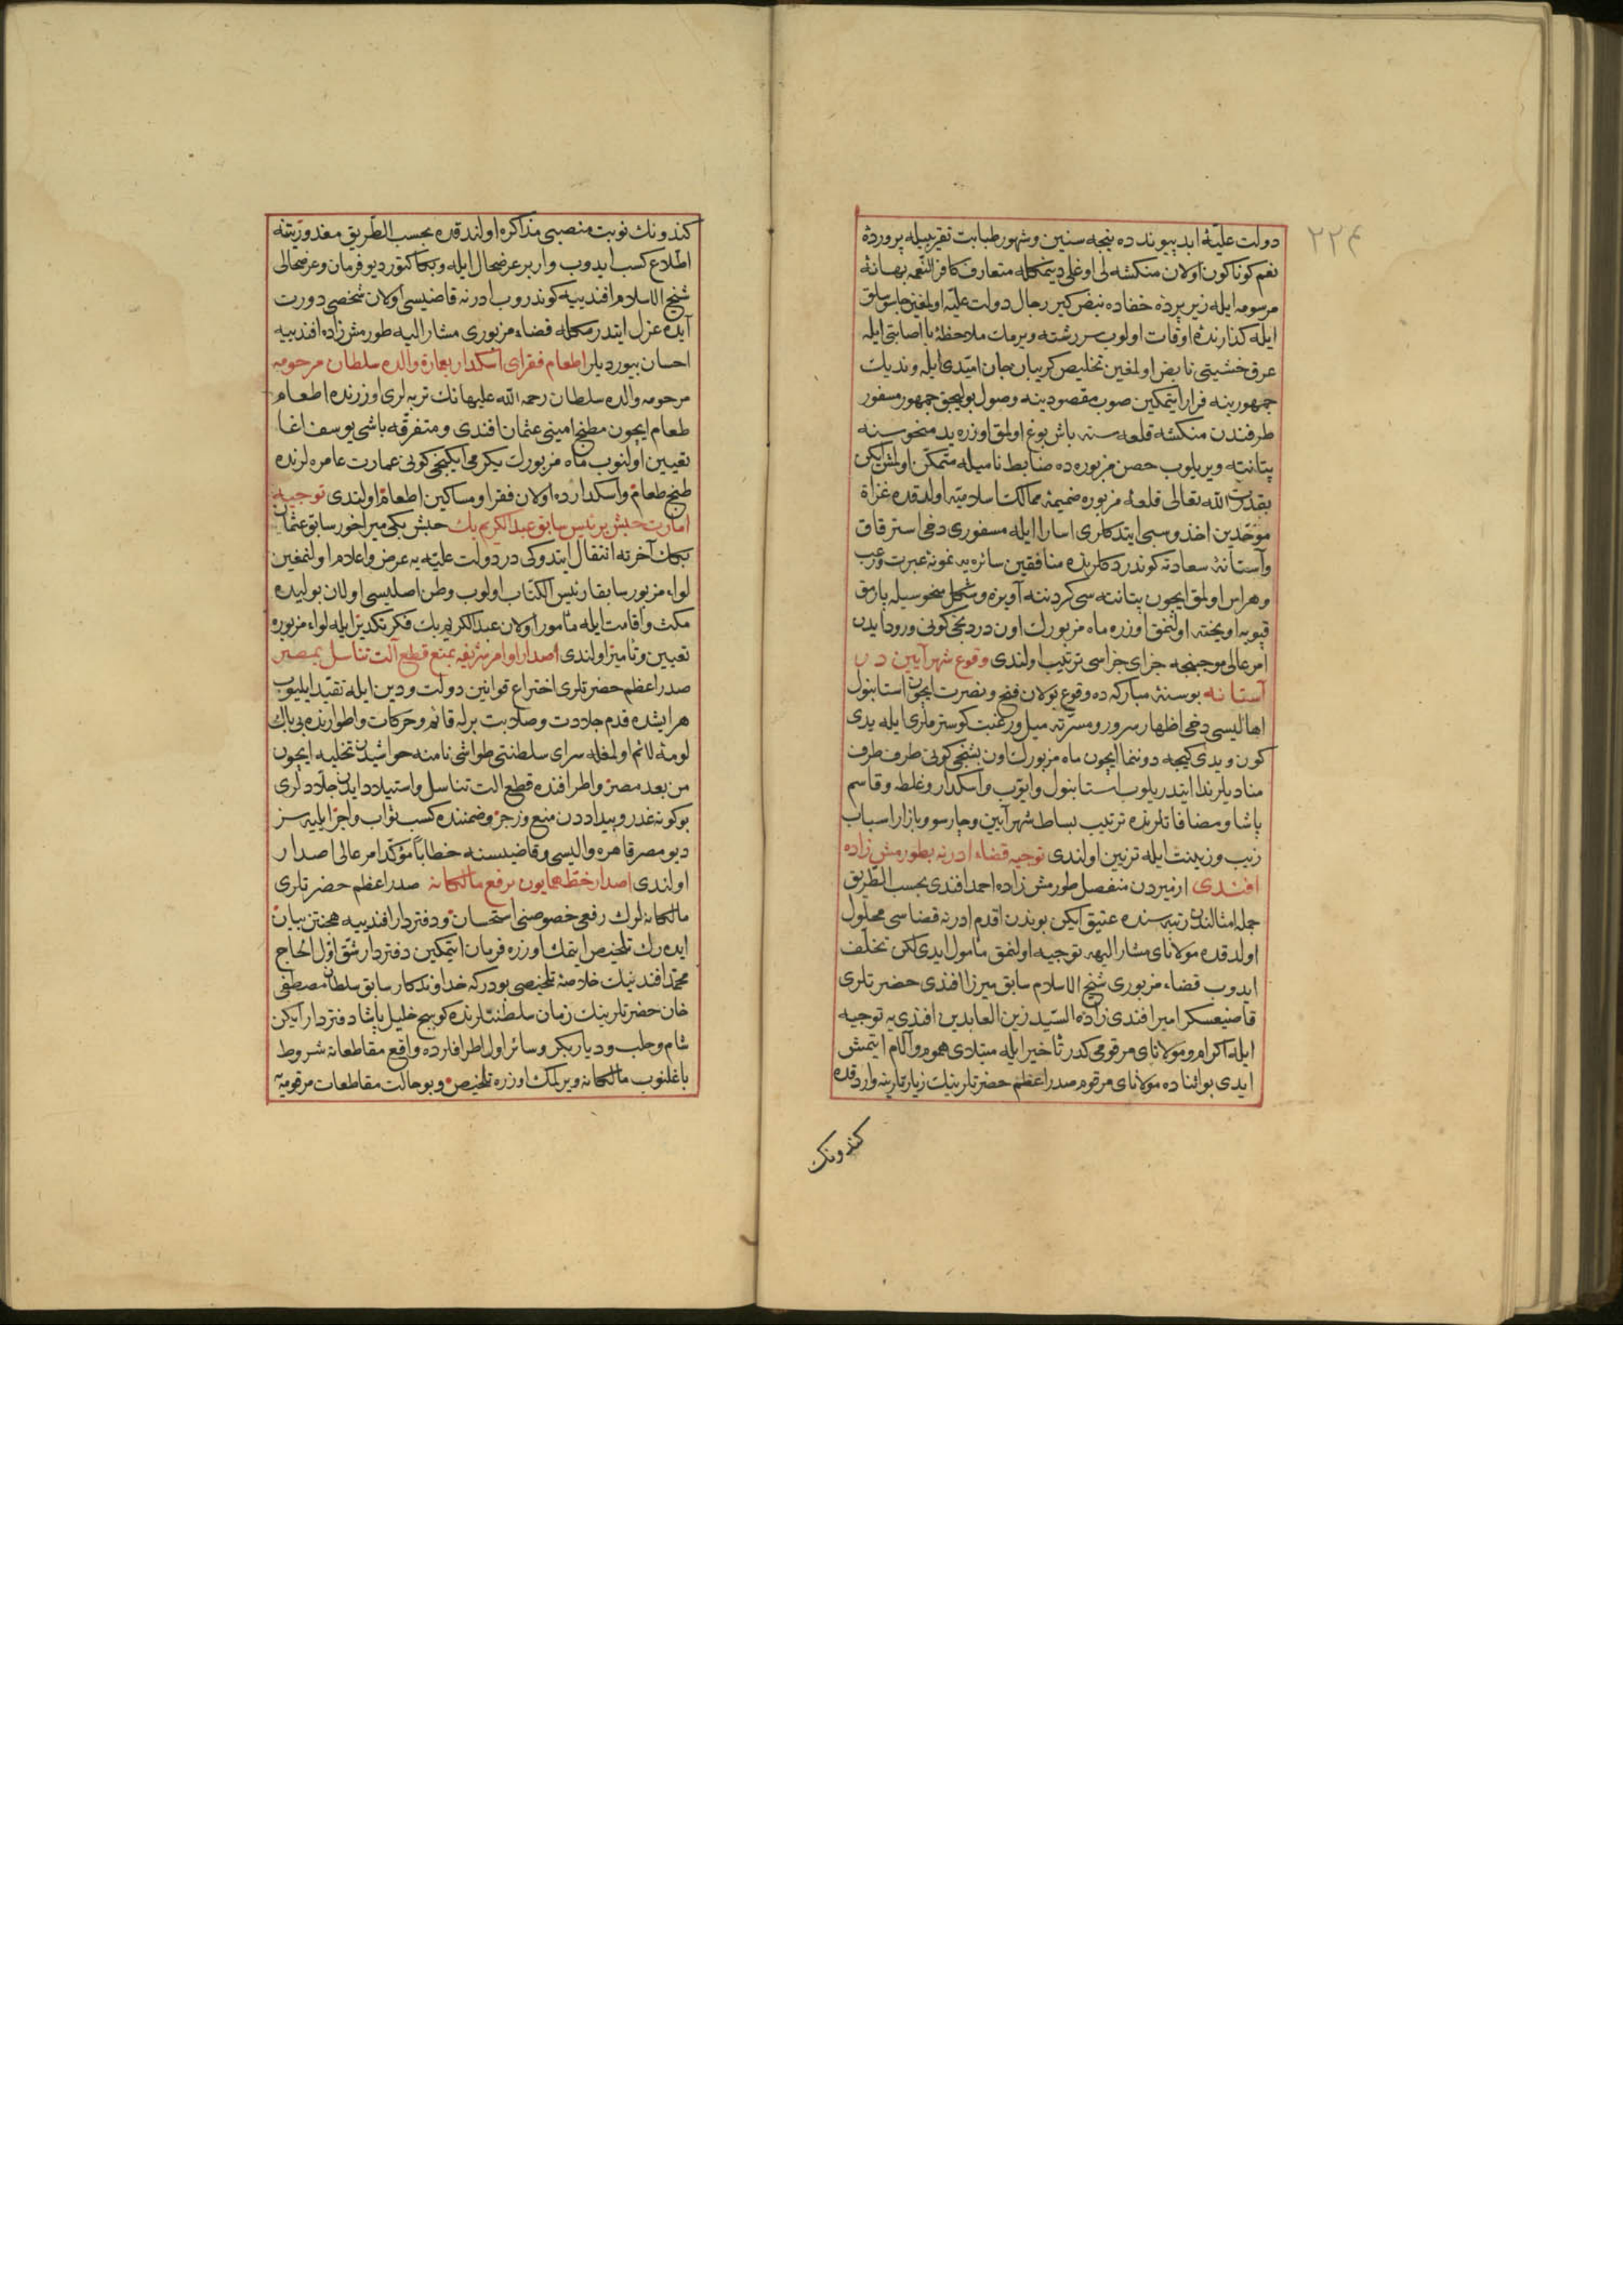 ٢٢٤
دولت علیهٔ ابد پیوندده نیجه سنین و شهور طبابت تقریبیله پروردهٔ
نعم کوناکون اولان منکشه لی اوغلی دیمکله متعارف کافر النعمه بهانهٔ
مرسومه ایله زیر پردهٔ خفاده نبض کیر رجال دولت علیه اولمغین جاسوسلق
ایله کذارندهٔ اوقات اولوب سررشته ویرمات ملاحظهٔ با اصابتی ایله
عرق خشیتی نابض اولمغین تخلیص کریبان جان امیدی ایله وندیك
جمهورینه فرار ایتمکین صوب مقصودینه وصول بولیجق جمهور مسفور
طرفندن منکشه قلعه سنه باش بوغ اولمق اوزره ید منحوسنه
پتانته ویریلوب حصن مزبوره ده ضابط نامیله متمکن اولمش ایکن
بقدرت الله تعالی قلعهٔ مزبوره ضمیمهٔ ممالك اسلامیه اولدقده غزاة
موحدین اخذ و سبی ایتدکلری اسارا ایله مسفوری دخی استرقاق
و آستانهٔ سعادته کوندردکلرنده منافقین سائره یه نمونهٔ عبرت و رعب
و هراس اولمق ایچون پتانته سی کردننه آویزه و شکل منحوسیله پارمق
قپویه آویخته اولنمق اوزره ماه مزبورك اون دردنجی کونی ورود ایدن
امر عالی موجبنجه جزای جزاسی ترتیب اولندی وقوع شهر آیین در
آستانه بو سنهٔ مبارکه ده وقوع بولان فتح و نصرت ایچون استانبول
اهالیسی دخی اظهار سرور و مسرته میل و رغبت کوسترملری ایله یدی
کون و یدی کیجه دوننما ایچون ماه مزبورك اون بشنجی کونی طرف طرف
منادیلر ندا ایتدریلوب استانبول و ایوب و اسکدار و غلطه و قاسم
پاشا و مضافاتلرنده ترتیب بساط شهر آیین و چارسو و بازار اسباب
زیب و زینت ایله تزیین اولندی توجیه قضاء ادرنه بطورمش زاده
افندی ازمیردن منفصل طورمش زاده احمد افندی بحسب الطریق
جمله امثالندن رتبه سنده عتیق ایکن بوندن اقدم ادرنه قضاسی محلول
اولدقده مولانای مشار الیهه توجیه اولنمق مأمول ایدی لکن تخلف
ایدوب قضاء مزبوری شیخ الاسلام سابق میرزا افندی حضرتلری
قاضیعسکر امیر افندی زاده السید زین العابدین افندی یه توجیه
ایله اکرام و مولانای مرقومی کدر تأخیر ایله مبتلای هموم و آلام ایتمش
ایدی بو اثناده مولانای مرقوم صدر اعظم حضرتلرینك زیارتلرینه واردقده
کندونك
کندونك نوبت منصبی مذاکره اولندقده بحسب الطریق مغدوریتنه
اطلاع کسب ایدوب وار بر عرضحال ایله و بکا کتور دیو فرمان و عرضحالی
شیخ الاسلام افندییه کوندروب ادرنه قاضیسی اولان شخصی دورت
آیده عزل ایتدرمکله قضاء مزبوری مشار الیه طورمش زاده افندییه
احسان بیوردیلر اطعام فقرای اسکدار بعمارة والده سلطان مرحومه
مرحومه والده سلطان رحمه الله علیهانك تربه لری اوزرنده اطعام
طعام ایچون مطبخ امینی عثمان افندی و متفرقه باشی یوسف اغا
تعیین اولنوب ماه مزبورك یکرمی ایکنجی کونی عمارت عامره لرنده
طبخ طعام و اسکدارده اولان فقرا و مساکین اطعام اولندی توجیه
امارت حبش برئیس سابق عبد الکریم بك حبش بکی میراخور سابق عثمان
بکك آخرته انتقال ایتدوکی در دولت علیه یه عرض و اعلام اولنمغین
لواء مزبور سابقا رئیس الکتاب اولوب وطن اصلیسی اولان بولیده
مکث و اقامت ایله مأمور اولان عبد الکریم بك فکر تکدیر ایله لواء مزبوره
تعیین و تأمیر اولندی اصدار اوامر شریفه بمنع قطع آلت تناسل بمصر
صدر اعظم حضرتلری اختراع قوانین دولت و دین ایله تقید ایلیوب
هر ایشده قدم جلادت و صلابت برله قائم و حرکات و اطوارنده بی باك
لومهٔ لائم اولمغله سرای سلطنتی طواشی نامنه حواشیدن تخلیه ایچون
من بعد مصر و اطرافنده قطع آلت تناسل و استیلاد ایدن جلادلری
بو کونه غدر و بیداددن منع و زجر و ضمننده کسب ثواب و اجر ایلیه سز
دیو مصر قاهره والیسی و قاضیسنه خطاباً مؤکد امر عالی اصدار
اولندی اصدار خط همایون برفع مالکانه صدر اعظم حضرتلری
مالکانه لرك رفعی خصوصنی استحسان و دفتردار افندییه مجتز بیان
ایدرك تلخیص ایتمك اوزره فرمان ایتمکین دفتردار شق اول الحاج
محمد افندینك خلاصهٔ تلخیصی بودرکه خداوندکار سابق سلطان مصطفی
خان حضرتلرینك زمان سلطنتلرنده کوسج خلیل پاشا دفتردار ایکن
شام و حلب و دیاربکر و سائر اول اطرافلرده واقع مقاطعات شروط
باغلنوب مالکانه ویرلمك اوزره تلخیص و بو حالت مقاطعات مرقومیه